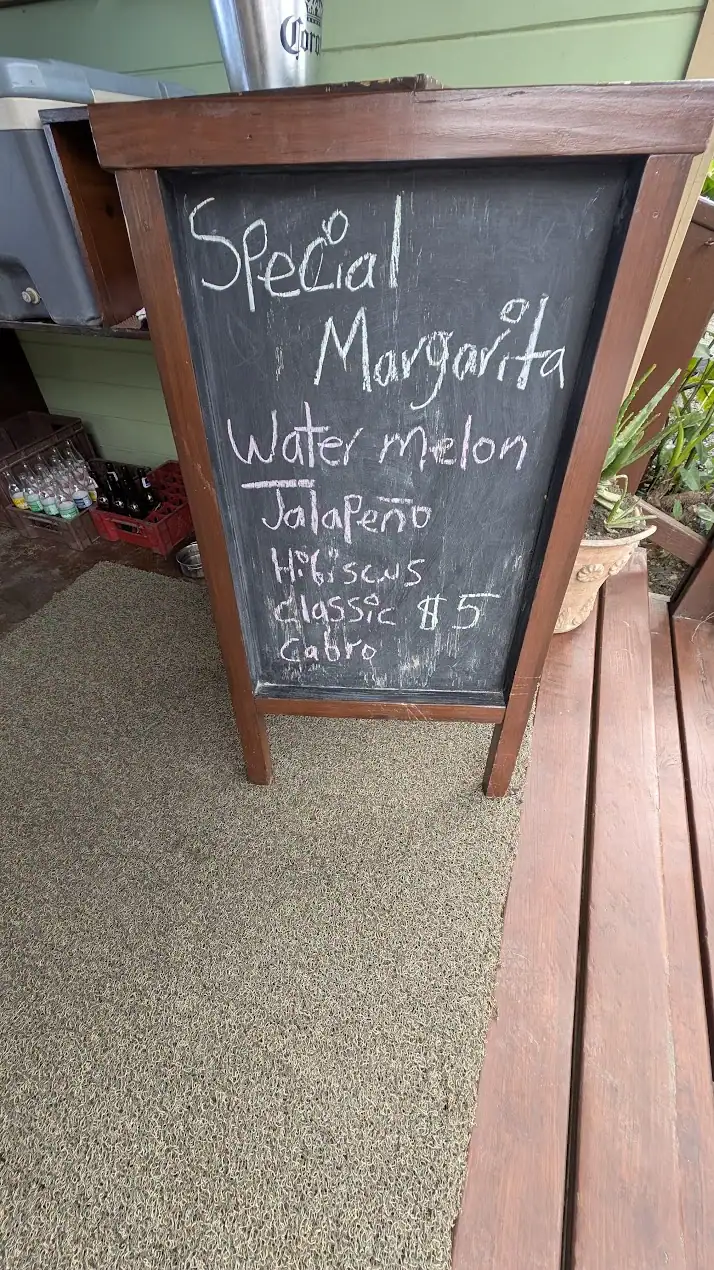 Coro
Special
Margarita
Water melon
Jalapeño
Hibiscus
classic $5
Cabro